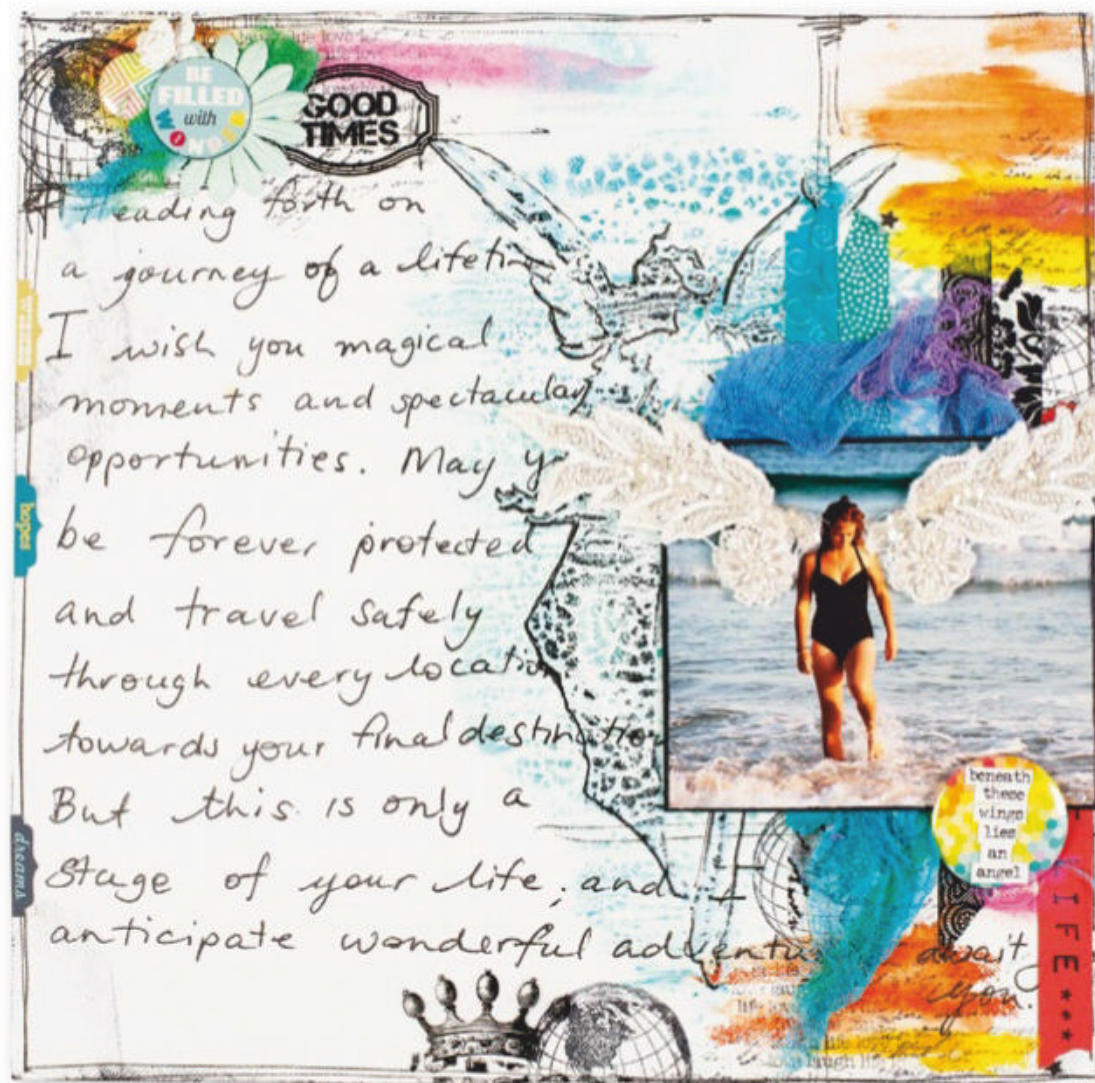 BE
FILLED
with
WONDER
GOOD
TIMES
eading forth on
a journey of a lifetim
I wish you magical
moments and spectacular
opportunities. May y
be forever protected
and travel safely
through every locatio
towards your final destinatio
But this is only a
stage of your life, and I
anticipate wonderful adventu await
you.
hopes
dreams
beneath
these
wings
lies
an
angel
LIFE***